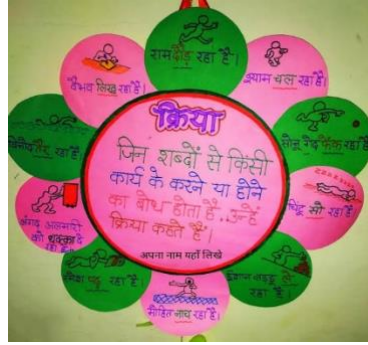 क्रिया
जिन शब्दों से किसी
कार्य के करने या होने
का बोध होता है..उन्हें
क्रिया कहते हैं।
अपना नाम यहाँ लिखे
राम दौड़ रहा है।
श्याम चल रहा है।
सोनू गेंद फेंक रहा है
सो रहा है।
रहा है।
मोहित नाच रहा है।
पढ़ रहा है।
अंगद अलमारी
को धक्का दे
रहा है।
तैर रहा है।
वैभव लिख रहा है।